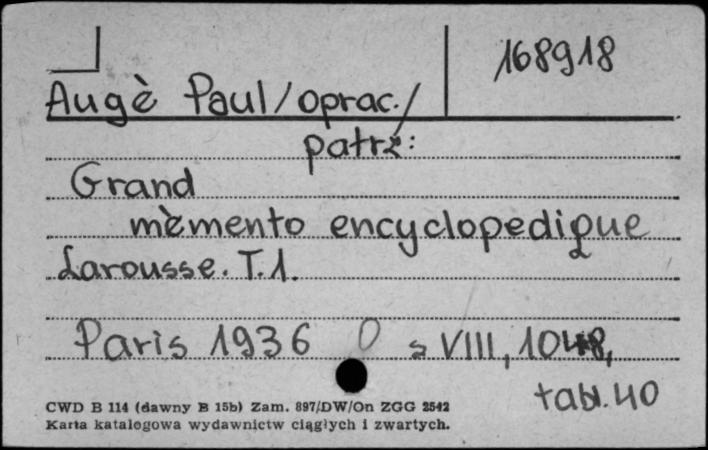 168918
Augè Paul/oprac./
patrz:
Grand
mèmento encyclopedique
Larousse. T.1.
Paris 1936 s VIII, 1048,
tabl. 40
CWD B 114 (dawny B 15b) Zam. 897/DW/On ZGG 2542
Karta katalogowa wydawnictw ciągłych i zwartych.